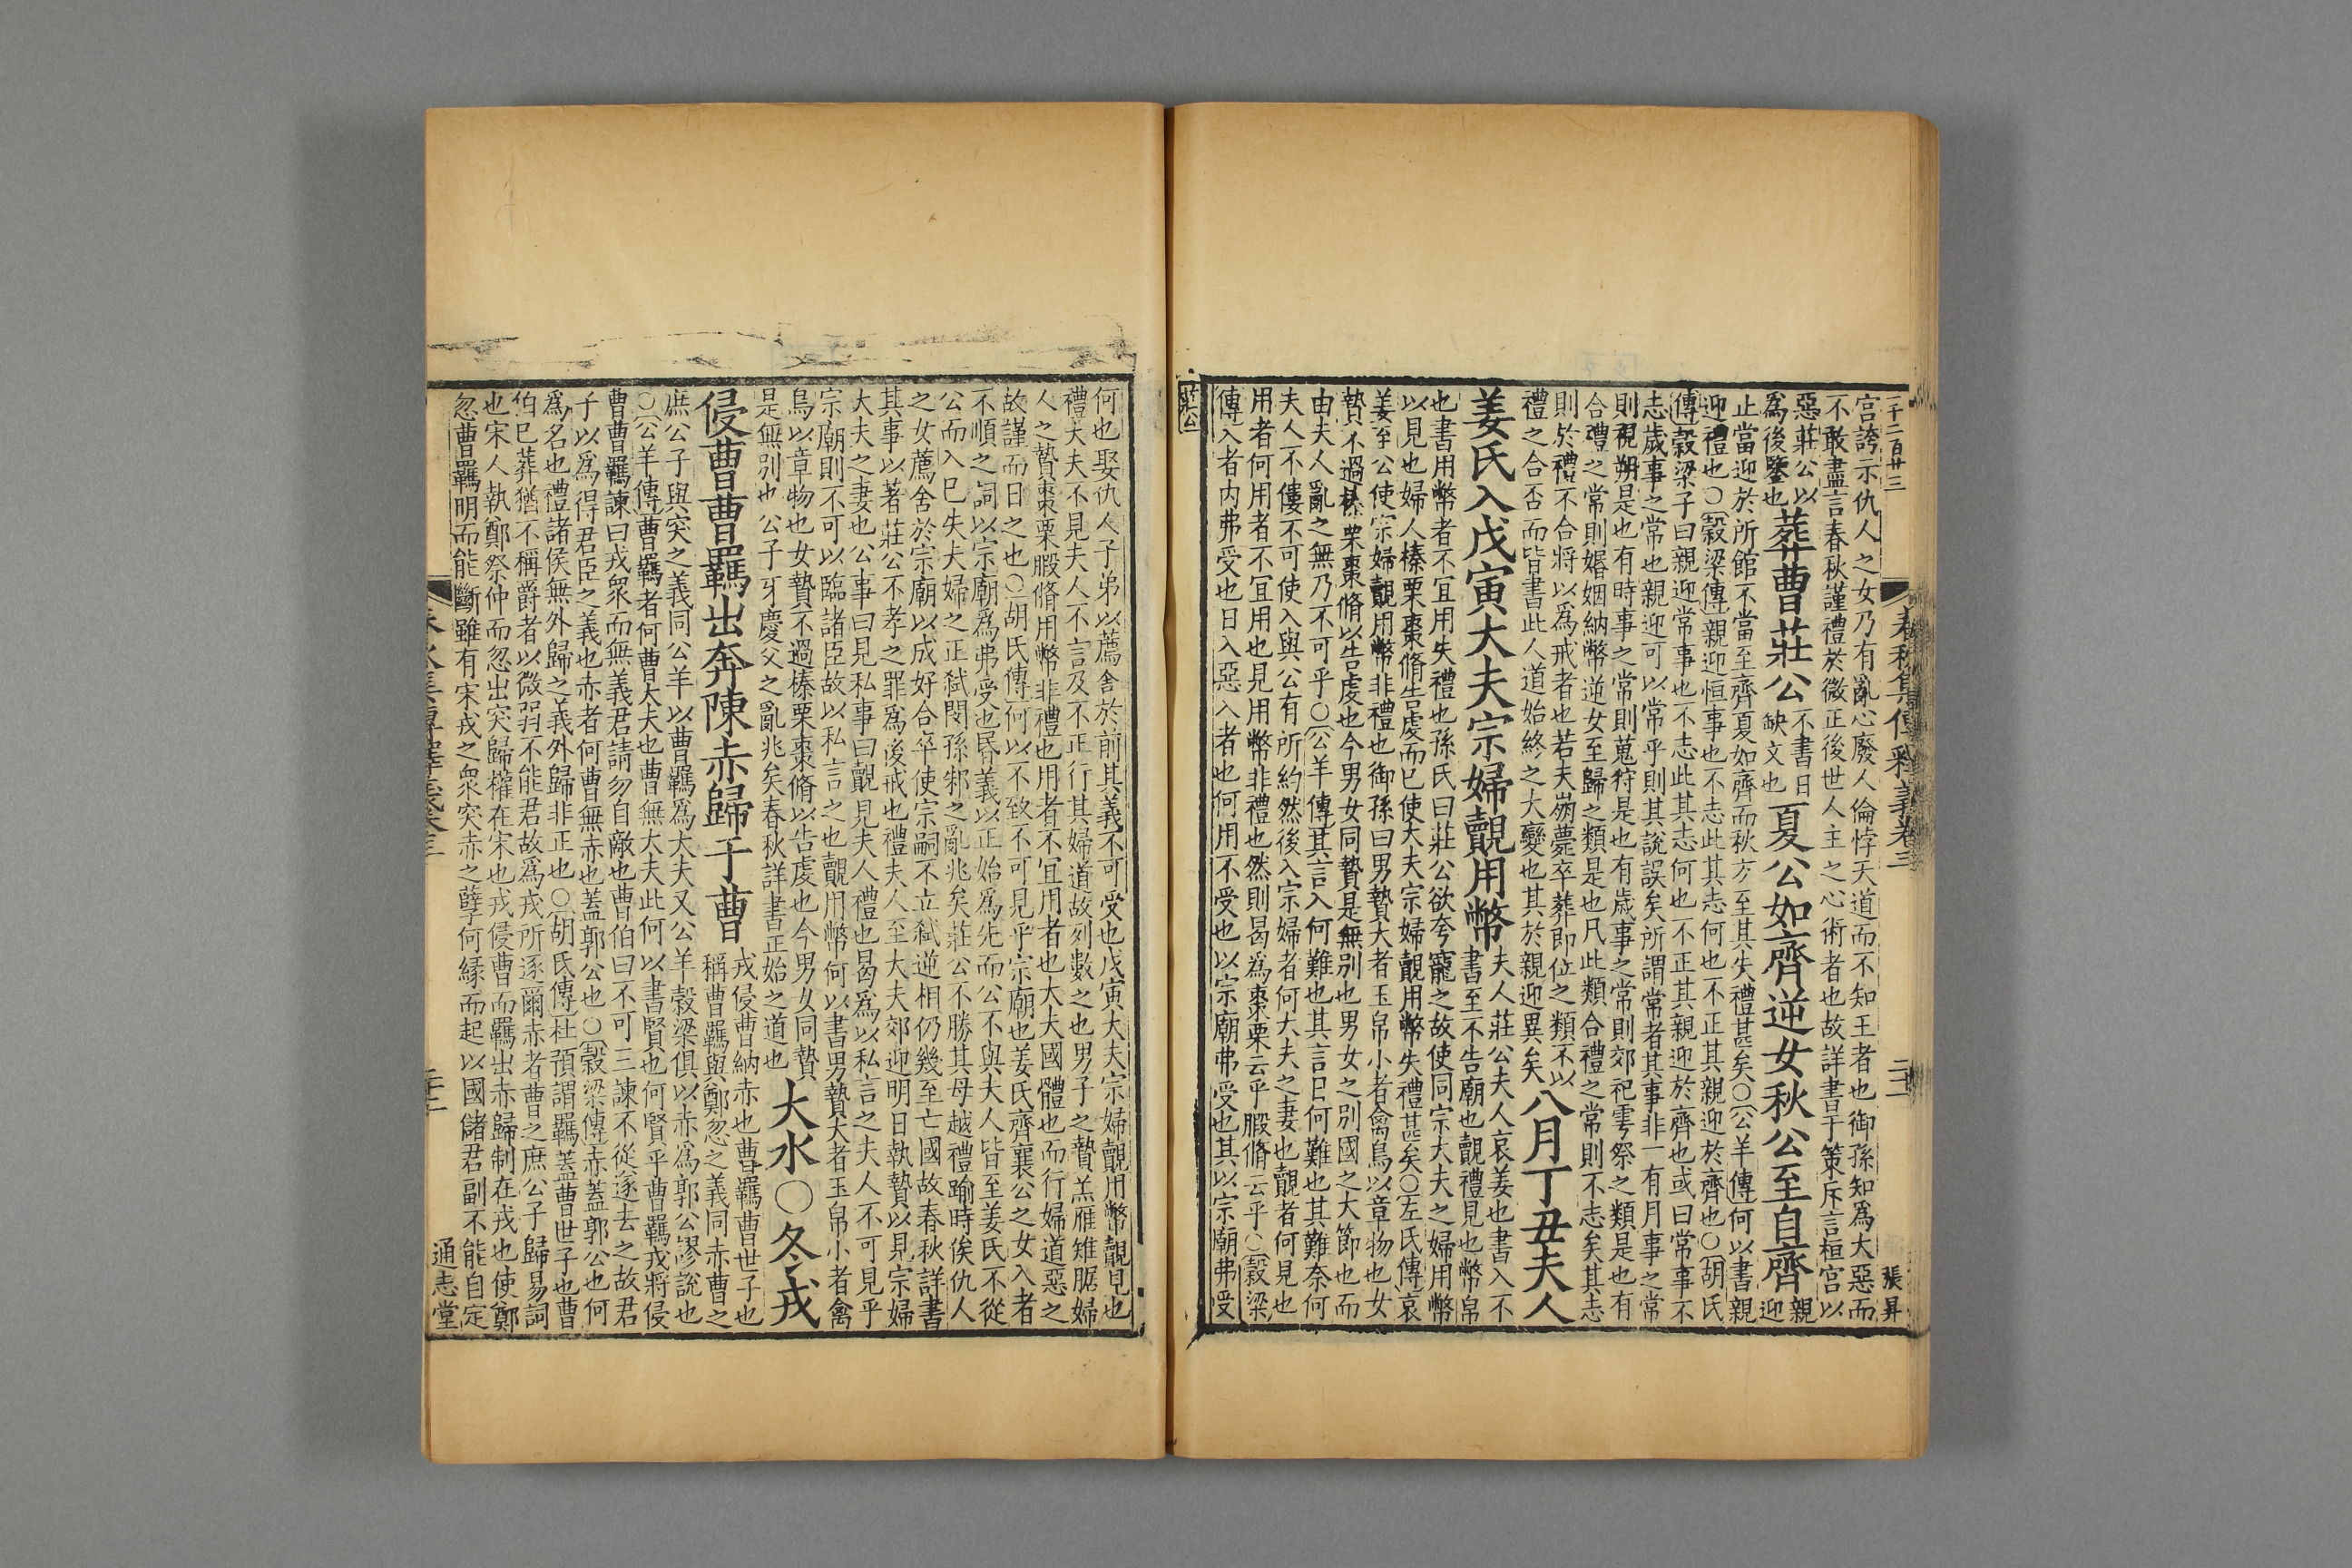 一千二百廿三
春秋集傳釋義卷三
張昇
宫誇示仇人之女乃有亂心廢人倫悖天道而不知王者也御孫知爲大惡而
不敢盡言春秋謹禮於微正後世人主之心術者也故詳書于策斥言桓宫以
惡莊公以
爲後鑒也
葬曹莊公
不書日
缺文也
夏公如齊逆女秋公至自齊
親
迎
止當迎於所館不當至齊夏如齊而秋方至其失禮甚矣○公羊傳何以書親
迎禮也○穀梁傳親迎恒事也不志此其志何也不正其親迎於齊也○胡氏
傳穀梁子曰親迎常事也不志此其志何也不正其親迎於齊也或曰常事不
志歲事之常也親迎可以常乎則其說誤矣所謂常者其事非一有月事之常
則視朔是也有時事之常則蒐狩是也有歲事之常則郊祀雩祭之類是也有
合禮之常則婚姻納幣逆女至歸之類是也凡此類合禮之常則不志矣其志
則於禮不合將以爲戒者也若夫崩薨卒葬即位之類不以
禮之合否而皆書此人道始終之大變也其於親迎異矣
八月丁丑夫人
姜氏入戊寅大夫宗婦覿用幣
夫人莊公夫人哀姜也書入不
書至不告廟也覿禮見也幣帛
也書用幣者不宜用失禮也孫氏曰莊公欲夸寵之故使同宗大夫之婦用幣
以見也婦人榛栗棗脩告虔而已使大夫宗婦覿用幣失禮甚矣○左氏傳哀
姜至公使宗婦覿用幣非禮也御孫曰男贄大者玉帛小者禽鳥以章物也女
贄不過榛栗棗脩以告虔也今男女同贄是無別也男女之別國之大節也而
由夫人亂之無乃不可乎○公羊傳其言入何難也其言日何難也其難奈何
夫人不僂不可使入與公有所約然後入宗婦者何大夫之妻也覿者何見也
用者何用者不宜用也見用幣非禮也然則曷爲棗栗云乎腶脩云乎○穀梁
傳入者内弗受也日入惡入者也何用不受也以宗廟弗受也其以宗廟弗受
莊公
何也娶仇人子弟以薦舍於前其義不可受也戊寅大夫宗婦覿用幣覿見也
禮大夫不見夫人不言及不正行其婦道故列數之也男子之贄羔雁雉腒婦
人之贄棗栗腶脩用幣非禮也用者不宜用者也大夫國體也而行婦道惡之
故謹而日之也○胡氏傳何以不致不可見乎宗廟也姜氏齊襄公之女入者
不順之詞以宗廟爲弗受也昏義以正始爲先而公不與夫人皆至姜氏不從
公而入已失夫婦之正弑閔孫邾之亂兆矣莊公不勝其母越禮踰時俟仇人
之女薦舍於宗廟以成好合卒使宗嗣不立弑逆相仍幾至亡國故春秋詳書
其事以著莊公不孝之罪爲後戒也禮夫人至大夫郊迎明日執贄以見宗婦
大夫之妻也公事曰見私事曰覿見夫人禮也曷爲以私言之夫人不可見乎
宗廟則不可以臨諸臣故以私言之也覿用幣何以書男贄大者玉帛小者禽
鳥以章物也女贄不過榛栗棗脩以告虔也今男女同贄
是無別也公子牙慶父之亂兆矣春秋詳書正始之道也
大水○冬戎
侵曹曹羈出奔陳赤歸于曹
戎侵曹納赤也曹羈曹世子也
稱曹羈與鄭忽之義同赤曹之
庶公子與突之義同公羊以曹羈爲大夫又公羊穀梁俱以赤爲郭公謬說也
○公羊傳曹羈者何曹大夫也曹無大夫此何以書賢也何賢乎曹羈戎將侵
曹曹羈諫曰戎衆而無義君請勿自敵也曹伯曰不可三諫不從遂去之故君
子以爲得君臣之義也赤者何曹無赤也蓋郭公也○穀梁傳赤蓋郭公也何
爲名也禮諸侯無外歸之義外歸非正也○胡氏傳杜預謂羈蓋曹世子也曹
伯已葬猶不稱爵者以微弱不能君故爲戎所逐爾赤者曹之庶公子歸易詞
也宋人執鄭祭仲而忽出突歸權在宋也戎侵曹而羈出赤歸制在戎也使鄭
忽曹羈明而能斷雖有宋戎之衆突赤之孽何緣而起以國儲君副不能自定
通志堂